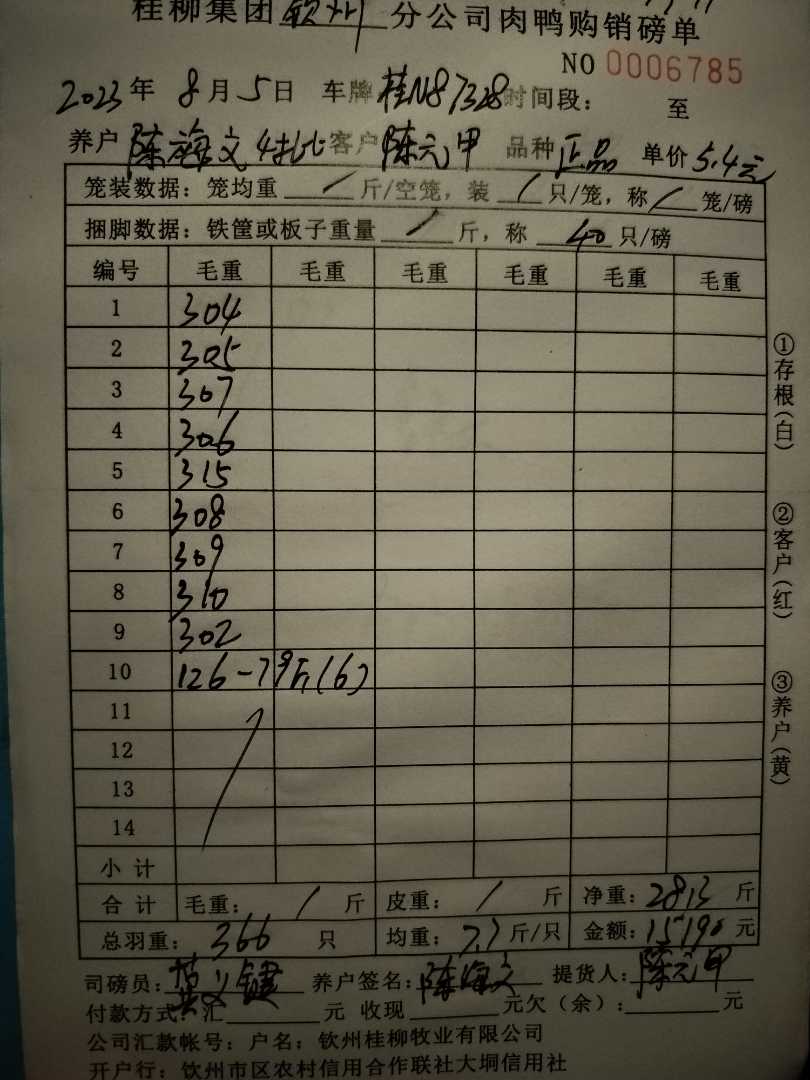 桂柳集团 钦州 分公司肉鸭购销磅单
NO 0006785
2023年 8月5日 车牌桂N87328时间段: 至
养户 陈海文 客户 陈元甲 品种 正品 单价 5.4元
笼装数据: 笼均重 / 斤/空笼, 装 / 只/笼, 称 / 笼/磅
捆脚数据: 铁筐或板子重量 / 斤, 称 40 只/磅
编号 毛重 毛重 毛重 毛重 毛重 毛重
1 304
2 305
3 307
4 306
5 315
6 308
7 309
8 310
9 302
10 126-79斤(6)
11
12
13
14
小计
合计 毛重: / 斤 皮重: / 斤 净重: 2813 斤
总羽重: 366 只 均重: 7.7 斤/只 金额: 15190 元
司磅员: 养户签名: 陈海文 提货人: 陈元甲
付款方式: 汇 元 收现 元欠(余): 元
公司汇款帐号: 户名: 钦州桂柳牧业有限公司
开户行: 钦州市区农村信用合作联社大垌信用社
①存根(白)
②客户(红)
③养户(黄)